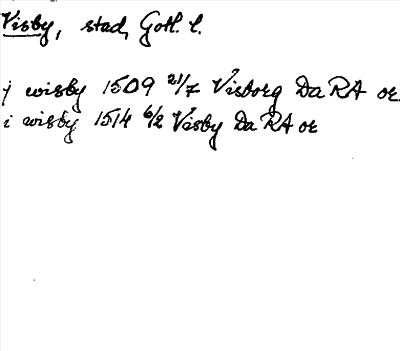 Visby, stad, Gotl. l.
j wisby 1509 21/7 Visborg Da RA or
i wisby 1514 6/2 Visby Da RA or